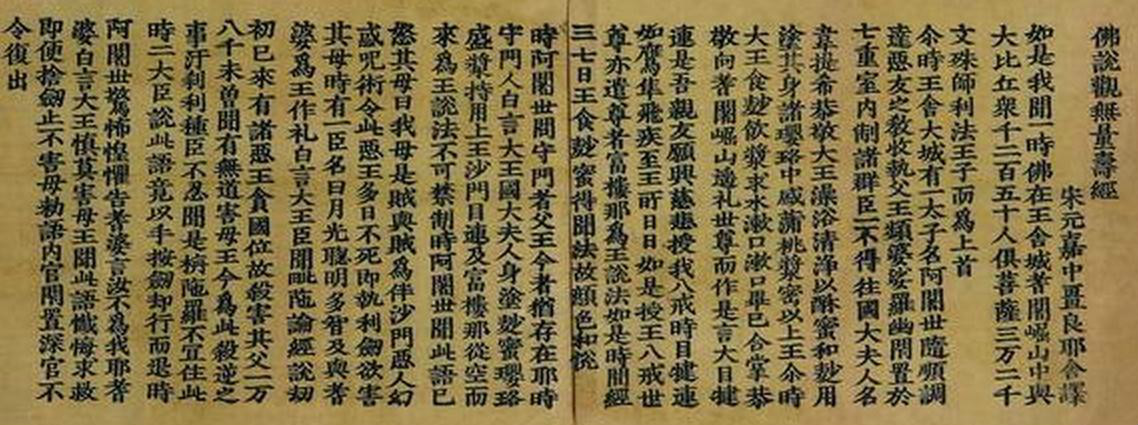 佛說觀無量壽經
宋元嘉中畺良耶舍譯
如是我聞一時佛在王舍城耆闍崛山中與
大比丘衆千二百五十人俱菩薩三万二千
文殊師利法王子而爲上首
尒時王舍大城有一太子名阿闍世隨順調
達惡友之教收執父王頻婆娑羅幽閇置於
七重室內制諸群臣一不得往國大夫人名
韋提希恭敬大王澡浴清淨以酥蜜和麨用
塗其身諸瓔珞中盛蒲桃漿密以上王尒時
大王食麨飲漿求水漱口漱口畢已合掌恭
敬向耆闍崛山遥礼世尊而作是言大目揵
連是吾親友願興慈悲授我八戒時目揵連
如鷹隼飛疾至王所日日如是授王八戒世
尊亦遣尊者富樓那爲王說法如是時閒經
三七日王食麨蜜得聞法故顏色和悅
時阿闍世問守門者父王今者猶存在耶時
守門人白言大王國大夫人身塗麨蜜瓔珞
盛漿持用上王沙門目連及富樓那從空而
來爲王說法不可禁制時阿闍世聞此語已
怒其母曰我母是賊與賊爲伴沙門惡人幻
惑呪術令此惡王多日不死即執利劒欲害
其母時有一臣名曰月光聰明多智及與耆
婆爲王作礼白言大王臣聞毗陁論經說劫
初已來有諸惡王貪國位故殺害其父一万
八千未曾聞有無道害母王今爲此殺逆之
事汙刹利種臣不忍聞是栴陁羅不宜住此
時二大臣說此語竟以手按劒却行而退時
阿闍世驚怖惶懼告耆婆言汝不爲我耶耆
婆白言大王慎莫害母王聞此語懺悔求救
即便捨劒止不害母勑語內官閇置深宮不
令復出